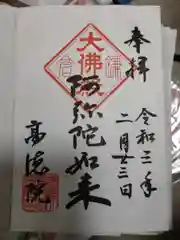 奉拝
令和三年
二月廿三日
大佛
阿弥陀如来
高德院